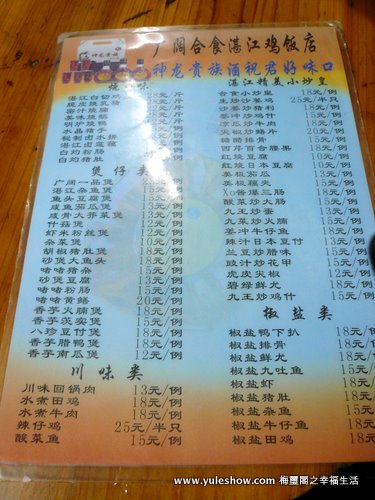 广阔合食湛江鸡饭店
神龙贵族酒祝君好味口
神龙贵族
湛江白切鸡
脆皮烧乳猪
蜜味烧鹅
明炉烧鸭
水晶猪手
白灼粉肠
白灼猪肚
煲仔类
广阔一品煲
湛江杂鱼煲 15元/例
鱼头豆腐煲
咸鱼茄瓜煲
咸骨大芥菜煲
什菇煲
虾米粉丝煲 12元/例
杂菜煲 10元/例
胡椒猪肚煲 18元/例
砂煲大鱼头 18元/例
啫啫猪杂 15元/例
砂煲豆腐
啫啫粉肠 15元/例
啫啫黄鳝 20元/例
香芋火腩煲 18元/例
香芋茨实煲 15元/例
八珍豆付煲 18元/例
香芋腊鸭煲 18元/例
香芋南瓜煲 12元/例
川味类
川味回锅肉 13元/例
水煮田鸡 18元/例
水煮牛肉 18元/例
辣仔鸡 25元/半只
酸菜鱼 15元/例
湛江精美小炒皇
合食小炒皇 18元/例
生炒沙姜鸡 25元/半只
沙姜炒猪利 18元/例
凉瓜炒牛肉
尖椒炒鳝片
糖醋排骨
西芹百合腰果
红烧豆腐
红烧日本豆腐
美极茄瓜
美极藕夹
Xo酱爆三肠
九菜炒蛋
九菜炒火腩
姜冲牛仔鱼
辣汁日本豆付
兰豆炒腊味
豉汁炒花甲
虎皮尖椒 12元/例
碧绿鲜尤 20元/例
九王炒鸡什 15元/例
椒盐类
椒盐鸭下扒 18元/例
椒盐排骨 18元/例
椒盐鲜尤 18元/例
椒盐九吐鱼 15元/例
椒盐虾 18元/例
椒盐猪肚 18元/例
椒盐杂鱼 15元/例
椒盐牛仔鱼 18元/例
椒盐田鸡 18元/例
www.yuleshow.com 梅璽閣之幸福生活